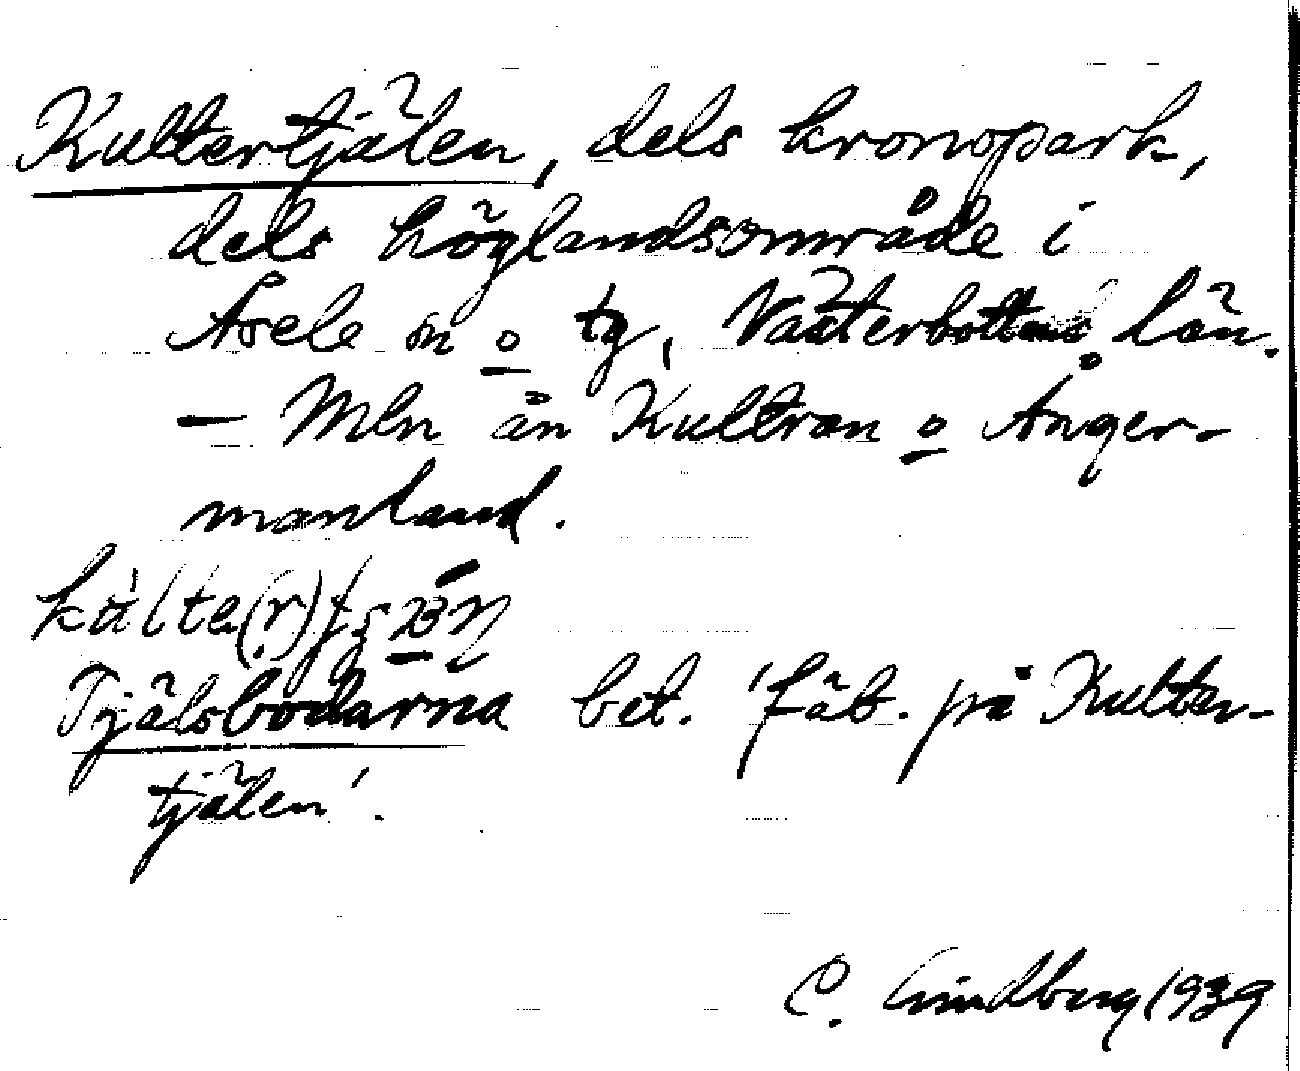 Kultertjälen, dels kronopark,
dels höglandsområde i
Åsele sn o tg, Västerbottens län.
– Mln ån Kultran o Ånger-
manland.
Tjälsbodarna bet. 'fäb. på Kulter-
tjälen'.
C. Lindberg 1939